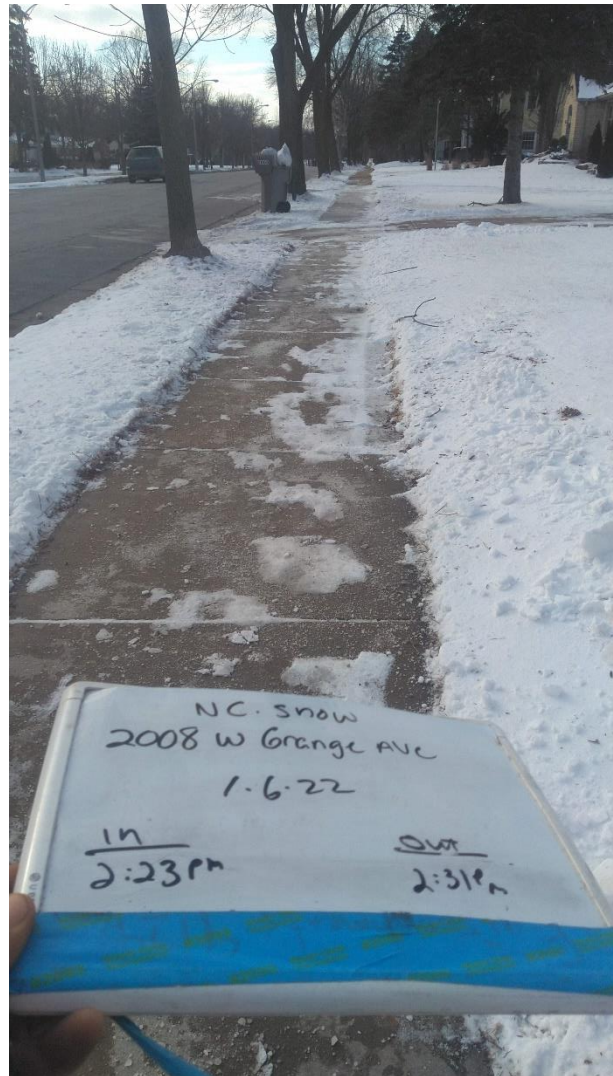 NC. Snow
2008 W Grange AVe
1.6.22
in
2:23pm
Out
2:31Pm